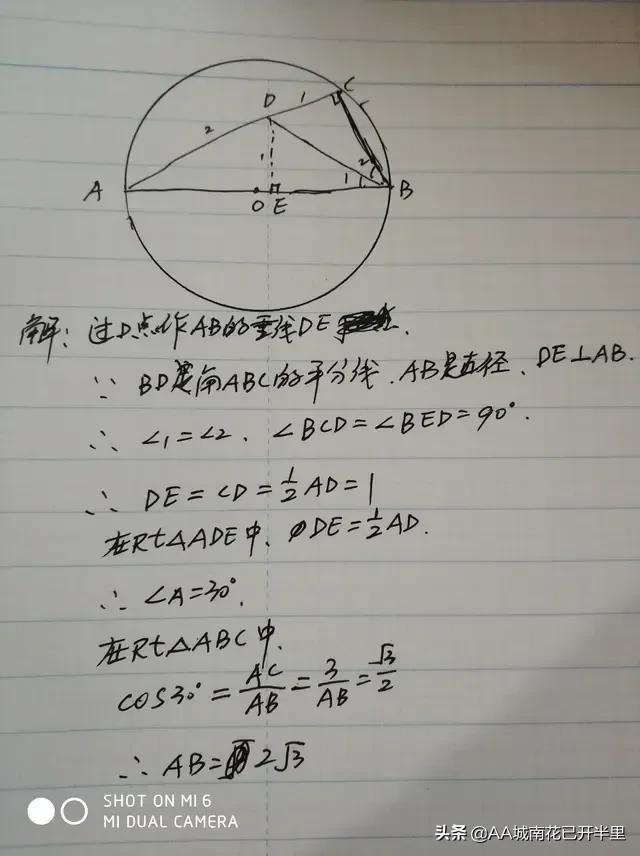 C
D
1
2
2
1
A
O
E
B
解：过D点作AB的垂线DE.
∵ BD是角ABC的平分线.AB是直径、DE⊥AB.
∴ ∠1=∠2、∠BCD=∠BED=90°.
∴ DE=CD=1/2AD=1
在Rt△ADE中、DE=1/2AD.
∴ ∠A=30°.
在Rt△ABC中.
COS30°=AC/AB=3/AB=√3/2
∴ AB=2√3
SHOT ON MI 6
MI DUAL CAMERA
头条 @AA城南花已开半里